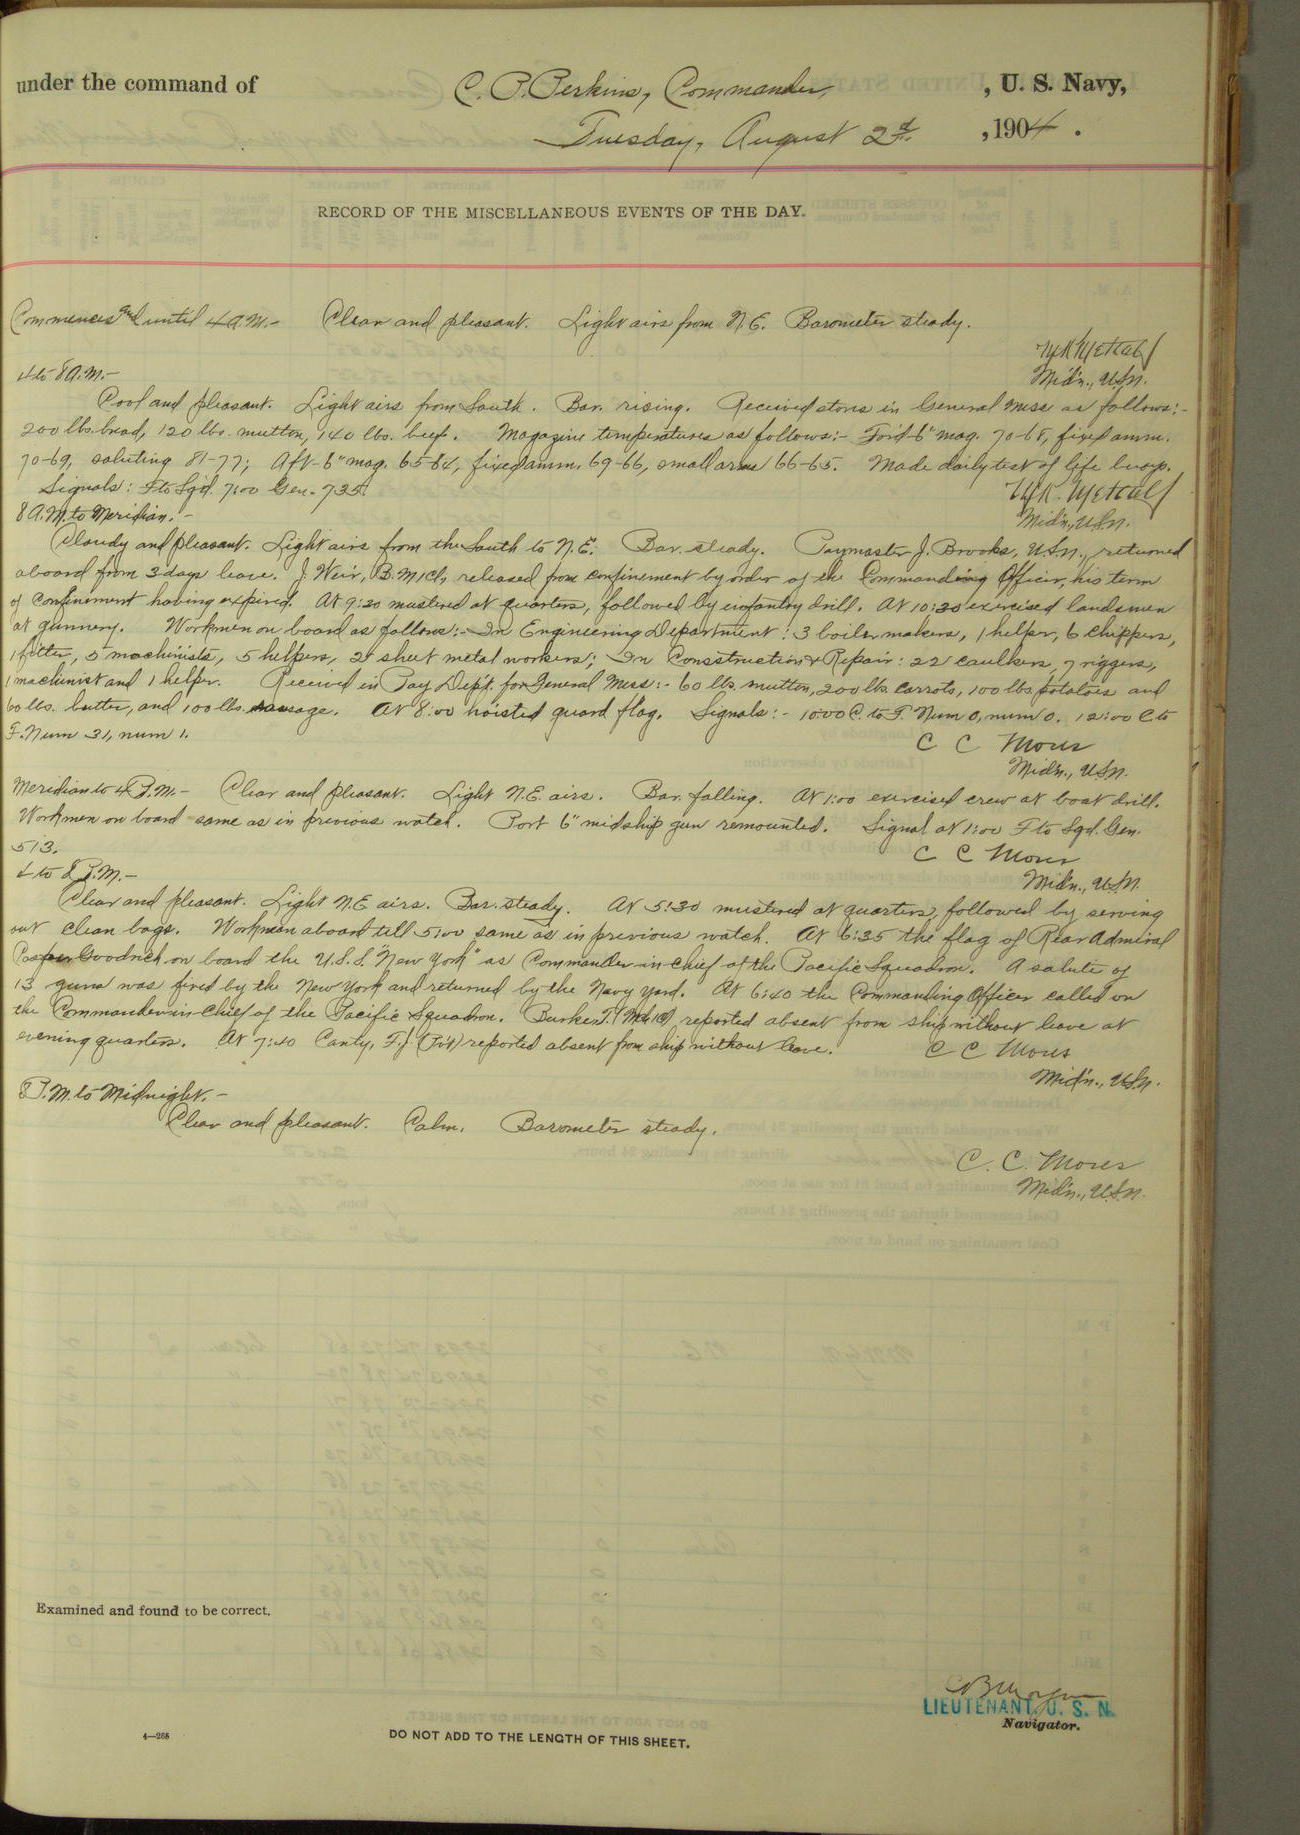 under the command of C. P. Perkins, Commander, , U. S. Navy,
Tuesday, August 2d. , 1904 .
RECORD OF THE MISCELLANEOUS EVENTS OF THE DAY.
Commences and until 4 A.M.- Clear and pleasant. Light airs from N.E. Barometer steady.
Metcalf
Mid'n., USN.
4 to 8 A.M.-
Cool and pleasant. Light airs from South. Bar. rising. Received stores in General Mess as follows:-
200 lbs. bread, 120 lbs. mutton, 140 lbs. beef. Magazine temperatures as follows:- For'd-6" mag. 70-68, fixed amm.
70-69, saluting 81-77; Aft-6" mag. 65-64, fixed amm. 69-66, small arms 66-65. Made daily test of life buoys.
Signals: F to Sqd. 7:00 Gen. 735.
Metcalf
8 A.M. to Meridian.- Mid'n., USN.
Cloudy and pleasant. Light airs from the South to N.E. Bar. steady. Paymaster J. Brooks, USN., returned
aboard from 3 days leave. J. Weir, B.M.1Cl, released from confinement by order of the Commanding Officer, his term
of confinement having expired. At 9:30 mustered at quarters, followed by infantry drill. At 10:30 exercised landsmen
at gunnery. Workmen on board as follows:- In Engineering Department: 3 boiler makers, 1 helper, 6 chippers,
1 fitter, 5 machinists, 5 helpers, 2 sheet metal workers; In Construction & Repair: 22 caulkers, 7 riggers,
1 machinist and 1 helper. Received in Pay Dep't. for General Mess:- 60 lbs. mutton, 200 lbs. carrots, 100 lbs. potatoes and
60 lbs. butter, and 100 lbs. sausage. At 8:00 hoisted guard flag. Signals:- 10:00 C. to F. Num 0, num 0. 12:00 C to
F. Num 31, num 1.
C C Moses
Mid'n., USN.
Meridian to 4 P.M.- Clear and pleasant. Light N.E. airs. Bar. falling. At 1:00 exercised crew at boat drill.
Workmen on board same as in previous watch. Port 6" midship gun remounted. Signal at 1:00 F to Sqd. Gen.
513.
C C Moses
4 to 8 P.M.- Mid'n., USN.
Clear and pleasant. Light N.E airs. Bar. steady. At 5:30 mustered at quarters, followed by serving
out clean bags. Workmen aboard till 5:00 same as in previous watch. At 6:35 the flag of Rear Admiral
Caspar Goodrich on board the U.S.S. "New York" as Commander in chief of the Pacific Squadron. A salute of
13 guns was fired by the New York and returned by the Navy Yard. At 6:40 the Commanding Officer called on
the Commander in Chief of the Pacific Squadron. Burke, T. reported absent from ship without leave at
evening quarters. At 7:40 Canty, F.J. (Pvt) reported absent from ship without leave. C C Moses
Mid'n., USN.
8 P.M. to Midnight.-
Clear and pleasant. Calm. Barometer steady.
C. C. Moses
Mid'n., USN.
Examined and found to be correct.
LIEUTENANT, U. S. N.
Navigator.
4—268 DO NOT ADD TO THE LENGTH OF THIS SHEET.